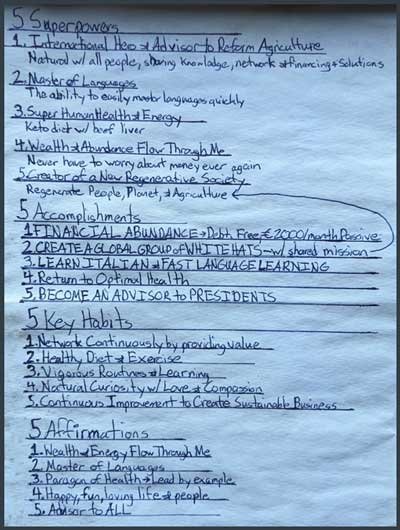 5 Superpowers
1. International Hero & Advisor to Reform Agriculture
Natural w/ all people, sharing knowladge, network & financing & solutions
2. Master of Languages
The ability to easily master languages quickly
3. Super Human Health & Energy
Keto diet w/ beef liver
4. Wealth & Abundance Flow Through Me
Never have to worry about money ever again
5. Creator of a New Regenerative Society
Regenerate People, Planet, & Agriculture
5 Accomplishments
1. FINANCIAL ABUNDANCE → Debt Free, €2000/month Passive
2. CREATE A GLOBAL GROUP of WHITE HATS w/ shared mission
3. LEARN ITALIAN & FAST LANGUAGE LEARNING
4. Return to Optimal Health
5. BECOME AN ADVISOR to PRESIDENTS
5 Key Habits
1. Network Continuously by providing value
2. Healthy Diet & Exercise
3. Vigorous Routines & Learning
4. Natural Curiosity w/ Love & Compassion
5. Continuous Improvement to Create Sustainable Business
5 Affirmations
1. Wealth & Energy Flow Through Me
2. Master of Languages
3. Paragon of Health → Lead by example
4. Happy, fun, loving life & people
5. Advisor to ALL